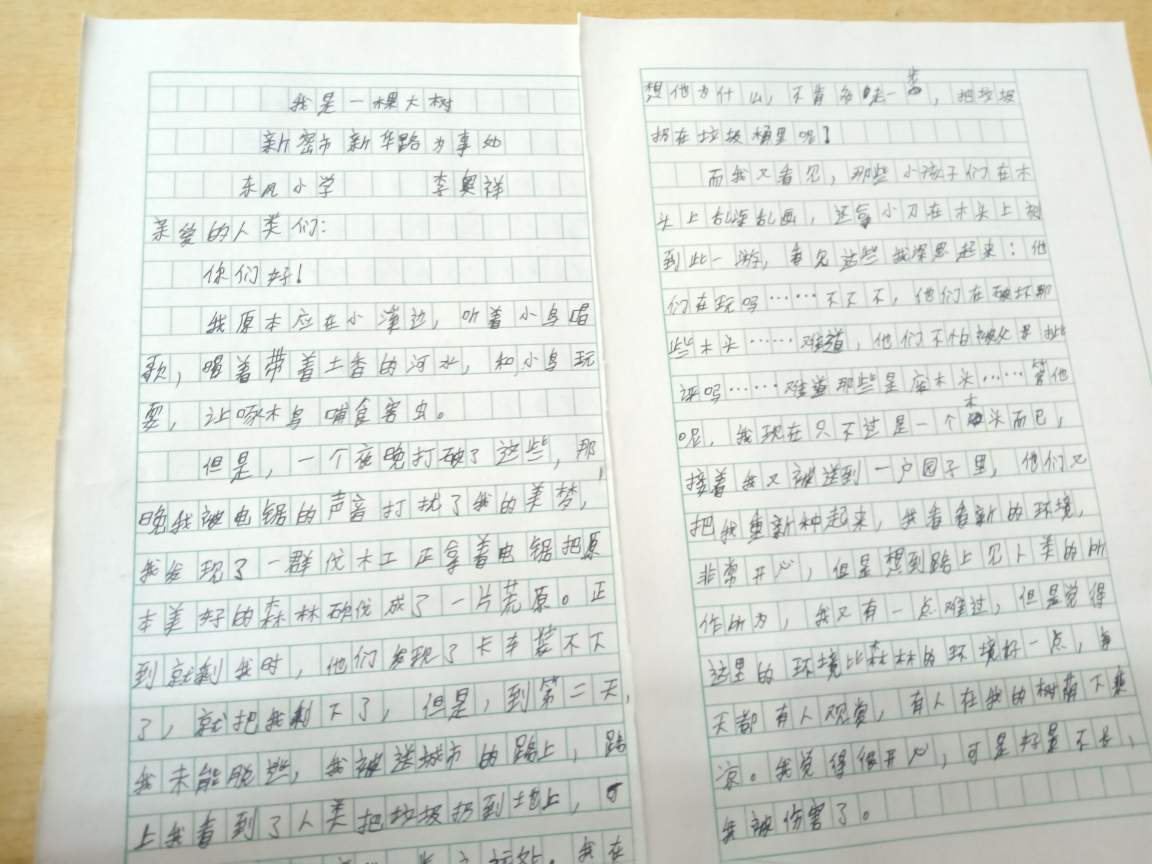 我是一棵大树
新密市新华路办事处
东风小学 李奥祥
亲爱的人类们:
你们好!
我原本应在小溪边,听着小鸟唱
歌,喝着带着土香的河水,和小鸟玩
耍,让啄木鸟哺食害虫。
但是,一个夜晚打破了这些,那
晚我被电锯的声音打扰了我的美梦,
我发现了一群伐木工正拿着电锯把原
本美好的森林砍伐成了一片荒原。正
到就剩我时,他们发现了卡车装不下
了,就把我剩下了,但是,到第二天,
我未能脱些,我被送城市的路上,路
上我看到了人类把垃圾扔到地上,
远处。我在
想他为什么,不肯多走一步,把垃圾
扔在垃圾桶里呢!
而我又看见,那些小孩子们在木
头上乱涂乱画,还拿小刀在木头上刻
到此一游,看见这些我深思起来:他
们在玩吗……不不不,他们在破坏那
些木头……难道,他们不怕被处
评吗……难道那些是废木头……管他
呢,我现在只不过是一个木头而已,
接着我又被送到一户园子里,他们又
把我重新种起来,我看看新的环境,
非常开心,但是想到路上见人类的所
作所为,我又有一点难过,但是觉得
这里的环境比森林的环境好一点,每
天都有人观赏,有人在我的树荫下乘
凉。我觉得很开心,可是好景不长,
我被伤害了。